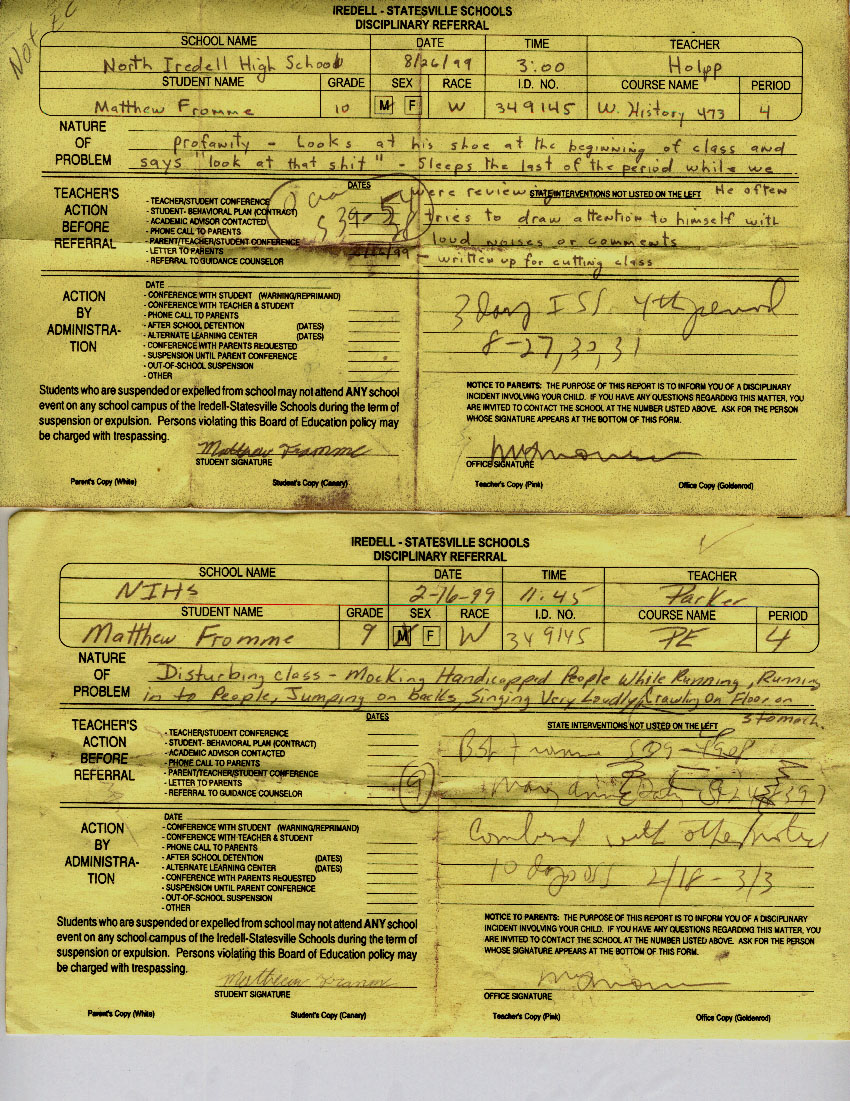 Not EC
IREDELL - STATESVILLE SCHOOLS
DISCIPLINARY REFERRAL
SCHOOL NAME DATE TIME TEACHER
North Iredell High School 8/26/99 3:00 Holpp
STUDENT NAME GRADE SEX RACE I.D. NO. COURSE NAME PERIOD
Matthew Fromme 10 M F W 349145 W. History 473 4
NATURE OF PROBLEM
Profanity - Looks at his shoe at the beginning of class and
says "look at that shit" - Sleeps the last of the period while we
were reviewing He often
tries to draw attention to himself with
loud noises or comments
- written up for cutting class
TEACHER'S ACTION BEFORE REFERRAL
DATES
STATE INTERVENTIONS NOT LISTED ON THE LEFT
- TEACHER/STUDENT CONFERENCE
- STUDENT- BEHAVIORAL PLAN (CONTRACT)
- ACADEMIC ADVISOR CONTACTED
- PHONE CALL TO PARENTS
- PARENT/TEACHER/STUDENT CONFERENCE
- LETTER TO PARENTS
- REFERRAL TO GUIDANCE COUNSELOR
ACTION BY ADMINISTRATION
DATE
- CONFERENCE WITH STUDENT (WARNING/REPRIMAND)
- CONFERENCE WITH TEACHER & STUDENT
- PHONE CALL TO PARENTS
- AFTER SCHOOL DETENTION (DATES)
- ALTERNATE LEARNING CENTER (DATES)
- CONFERENCE WITH PARENTS REQUESTED
- SUSPENSION UNTIL PARENT CONFERENCE
- OUT-OF-SCHOOL SUSPENSION
- OTHER
3 day ISS 4th period
8-27, 30, 31
Students who are suspended or expelled from school may not attend ANY school
event on any school campus of the Iredell-Statesville Schools during the term of
suspension or expulsion. Persons violating this Board of Education policy may
be charged with trespassing.
NOTICE TO PARENTS: THE PURPOSE OF THIS REPORT IS TO INFORM YOU OF A DISCIPLINARY
INCIDENT INVOLVING YOUR CHILD. IF YOU HAVE ANY QUESTIONS REGARDING THIS MATTER, YOU
ARE INVITED TO CONTACT THE SCHOOL AT THE NUMBER LISTED ABOVE. ASK FOR THE PERSON
WHOSE SIGNATURE APPEARS AT THE BOTTOM OF THIS FORM.
Matthew Fromme
STUDENT SIGNATURE
OFFICE SIGNATURE
Parent's Copy (White) Student's Copy (Canary) Teacher's Copy (Pink) Office Copy (Goldenrod)
IREDELL - STATESVILLE SCHOOLS
DISCIPLINARY REFERRAL
SCHOOL NAME DATE TIME TEACHER
NIHS 2-16-99 11:45 Parker
STUDENT NAME GRADE SEX RACE I.D. NO. COURSE NAME PERIOD
Matthew Fromme 9 M F W 349145 PE 4
NATURE OF PROBLEM
Disturbing class - Mocking Handicapped People While Running, Running
in to People, Jumping on Backs, Singing Very Loudly, Crawling On Floor on
stomach.
TEACHER'S ACTION BEFORE REFERRAL
DATES
STATE INTERVENTIONS NOT LISTED ON THE LEFT
- TEACHER/STUDENT CONFERENCE
- STUDENT- BEHAVIORAL PLAN (CONTRACT)
- ACADEMIC ADVISOR CONTACTED
- PHONE CALL TO PARENTS
- PARENT/TEACHER/STUDENT CONFERENCE
- LETTER TO PARENTS
- REFERRAL TO GUIDANCE COUNSELOR
9
ACTION BY ADMINISTRATION
DATE
- CONFERENCE WITH STUDENT (WARNING/REPRIMAND)
- CONFERENCE WITH TEACHER & STUDENT
- PHONE CALL TO PARENTS
- AFTER SCHOOL DETENTION (DATES)
- ALTERNATE LEARNING CENTER (DATES)
- CONFERENCE WITH PARENTS REQUESTED
- SUSPENSION UNTIL PARENT CONFERENCE
- OUT-OF-SCHOOL SUSPENSION
- OTHER
Combined with other
10 days OSS 2/18 - 3/3
Students who are suspended or expelled from school may not attend ANY school
event on any school campus of the Iredell-Statesville Schools during the term of
suspension or expulsion. Persons violating this Board of Education policy may
be charged with trespassing.
NOTICE TO PARENTS: THE PURPOSE OF THIS REPORT IS TO INFORM YOU OF A DISCIPLINARY
INCIDENT INVOLVING YOUR CHILD. IF YOU HAVE ANY QUESTIONS REGARDING THIS MATTER, YOU
ARE INVITED TO CONTACT THE SCHOOL AT THE NUMBER LISTED ABOVE. ASK FOR THE PERSON
WHOSE SIGNATURE APPEARS AT THE BOTTOM OF THIS FORM.
Matthew Fromme
STUDENT SIGNATURE
OFFICE SIGNATURE
Parent's Copy (White) Student's Copy (Canary) Teacher's Copy (Pink) Office Copy (Goldenrod)